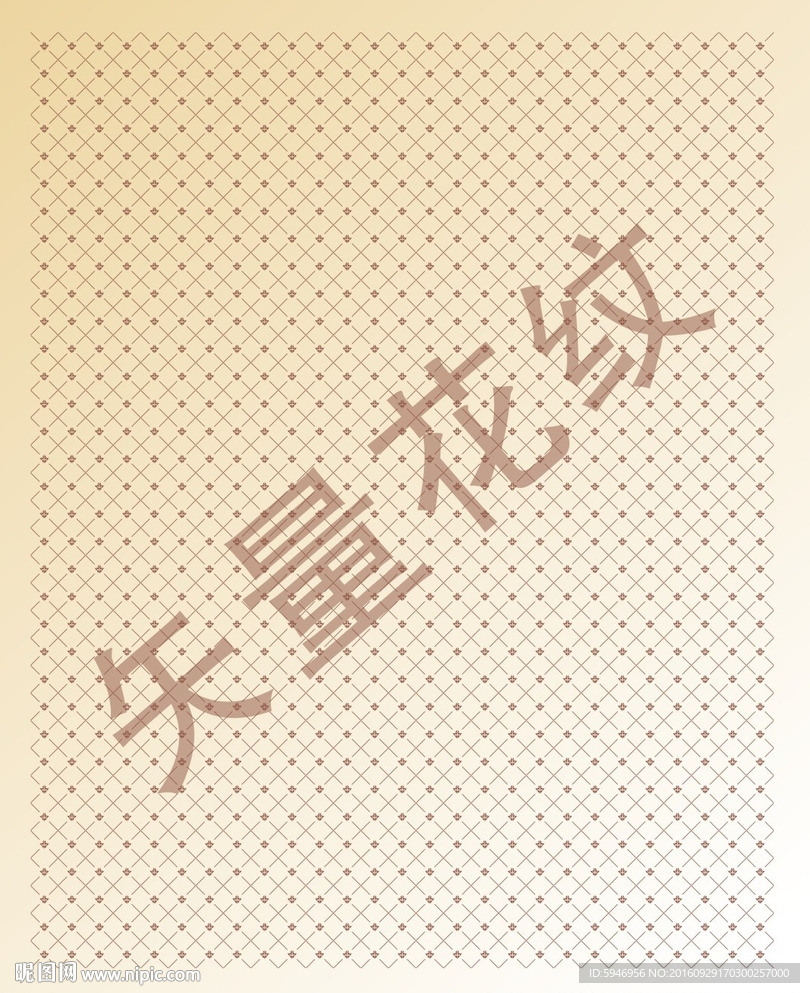 矢量花纹
昵图网 www.nipic.com
ID:5946956 NO:20160929170300257000